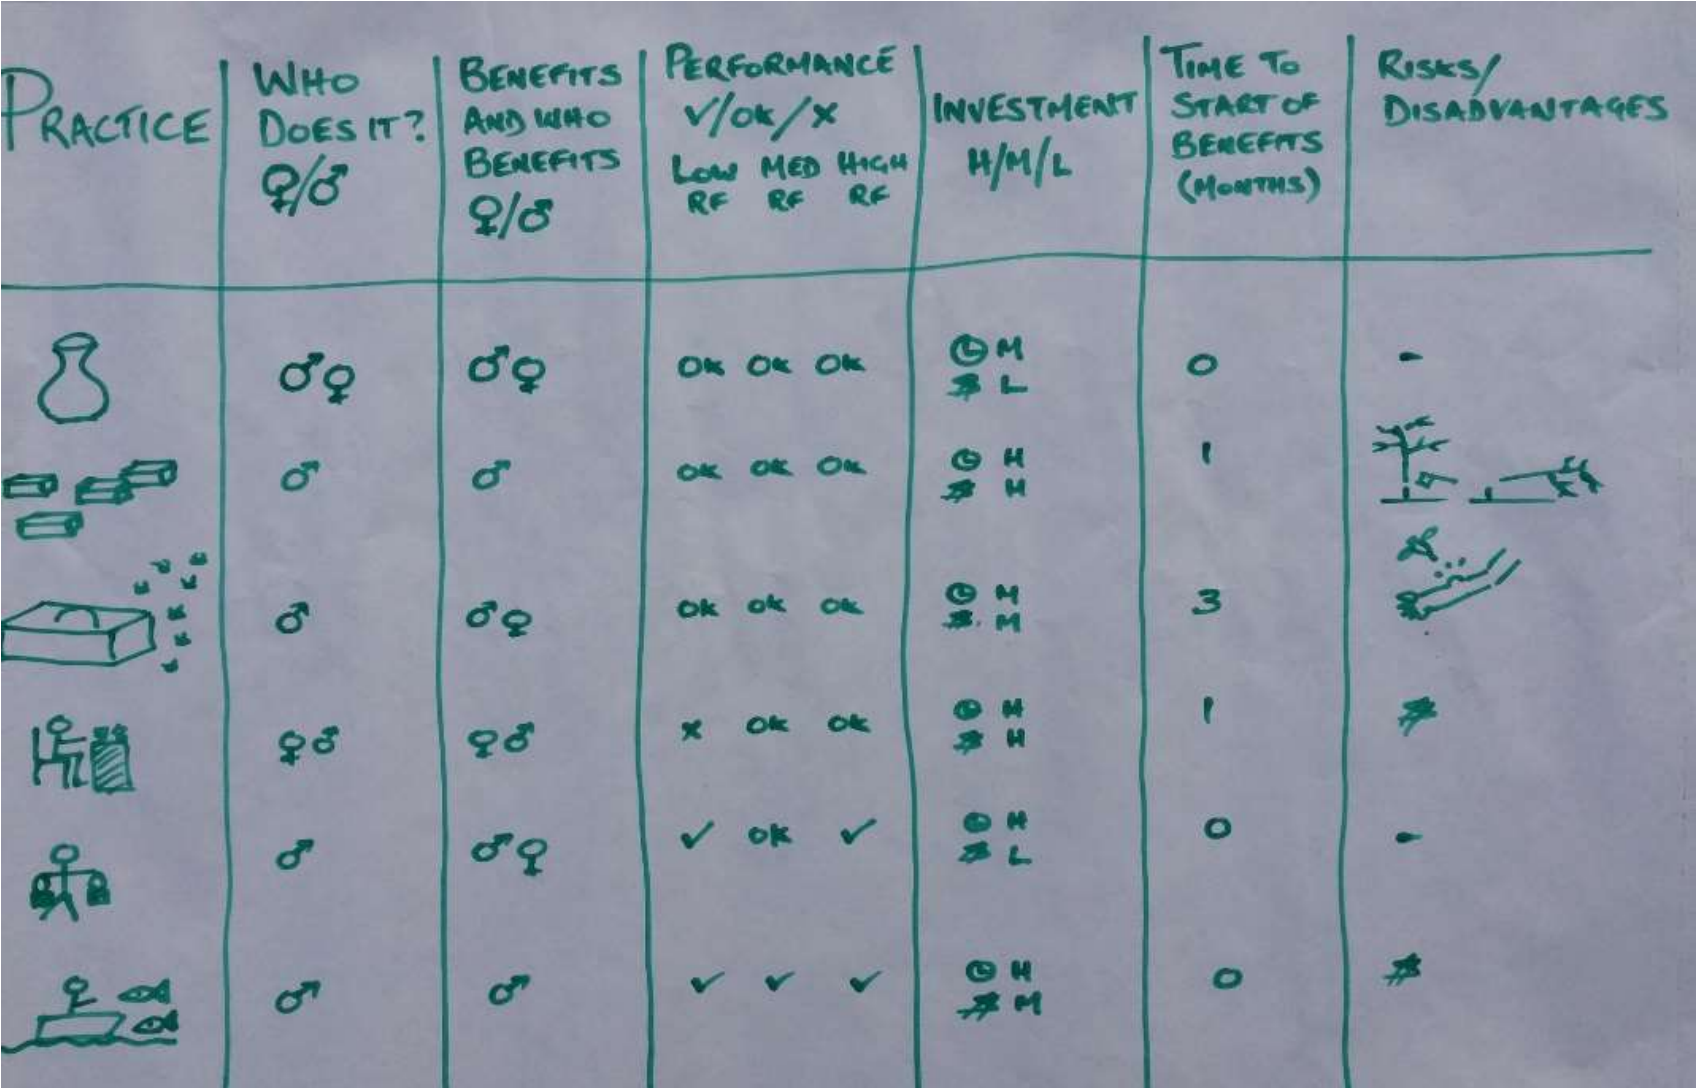 PRACTICE
WHO
DOES IT?
♀/♂
BENEFITS
AND WHO
BENEFITS
♀/♂
PERFORMANCE
✓/OK/x
LOW MED HIGH
RF RF RF
INVESTMENT
H/M/L
TIME TO
START OF
BENEFITS
(MONTHS)
RISKS/
DISADVANTAGES
♂♀ ♂♀ OK OK OK M 0 -
$ L
♂ ♂ OK OK OK H 1
$ H
♂ ♂♀ OK OK OK M 3
$ M
♀♂ ♀♂ x OK OK H 1 $
$ H
♂ ♂♀ ✓ OK ✓ H 0 -
$ L
♂ ♂ ✓ ✓ ✓ H 0 $
$ M